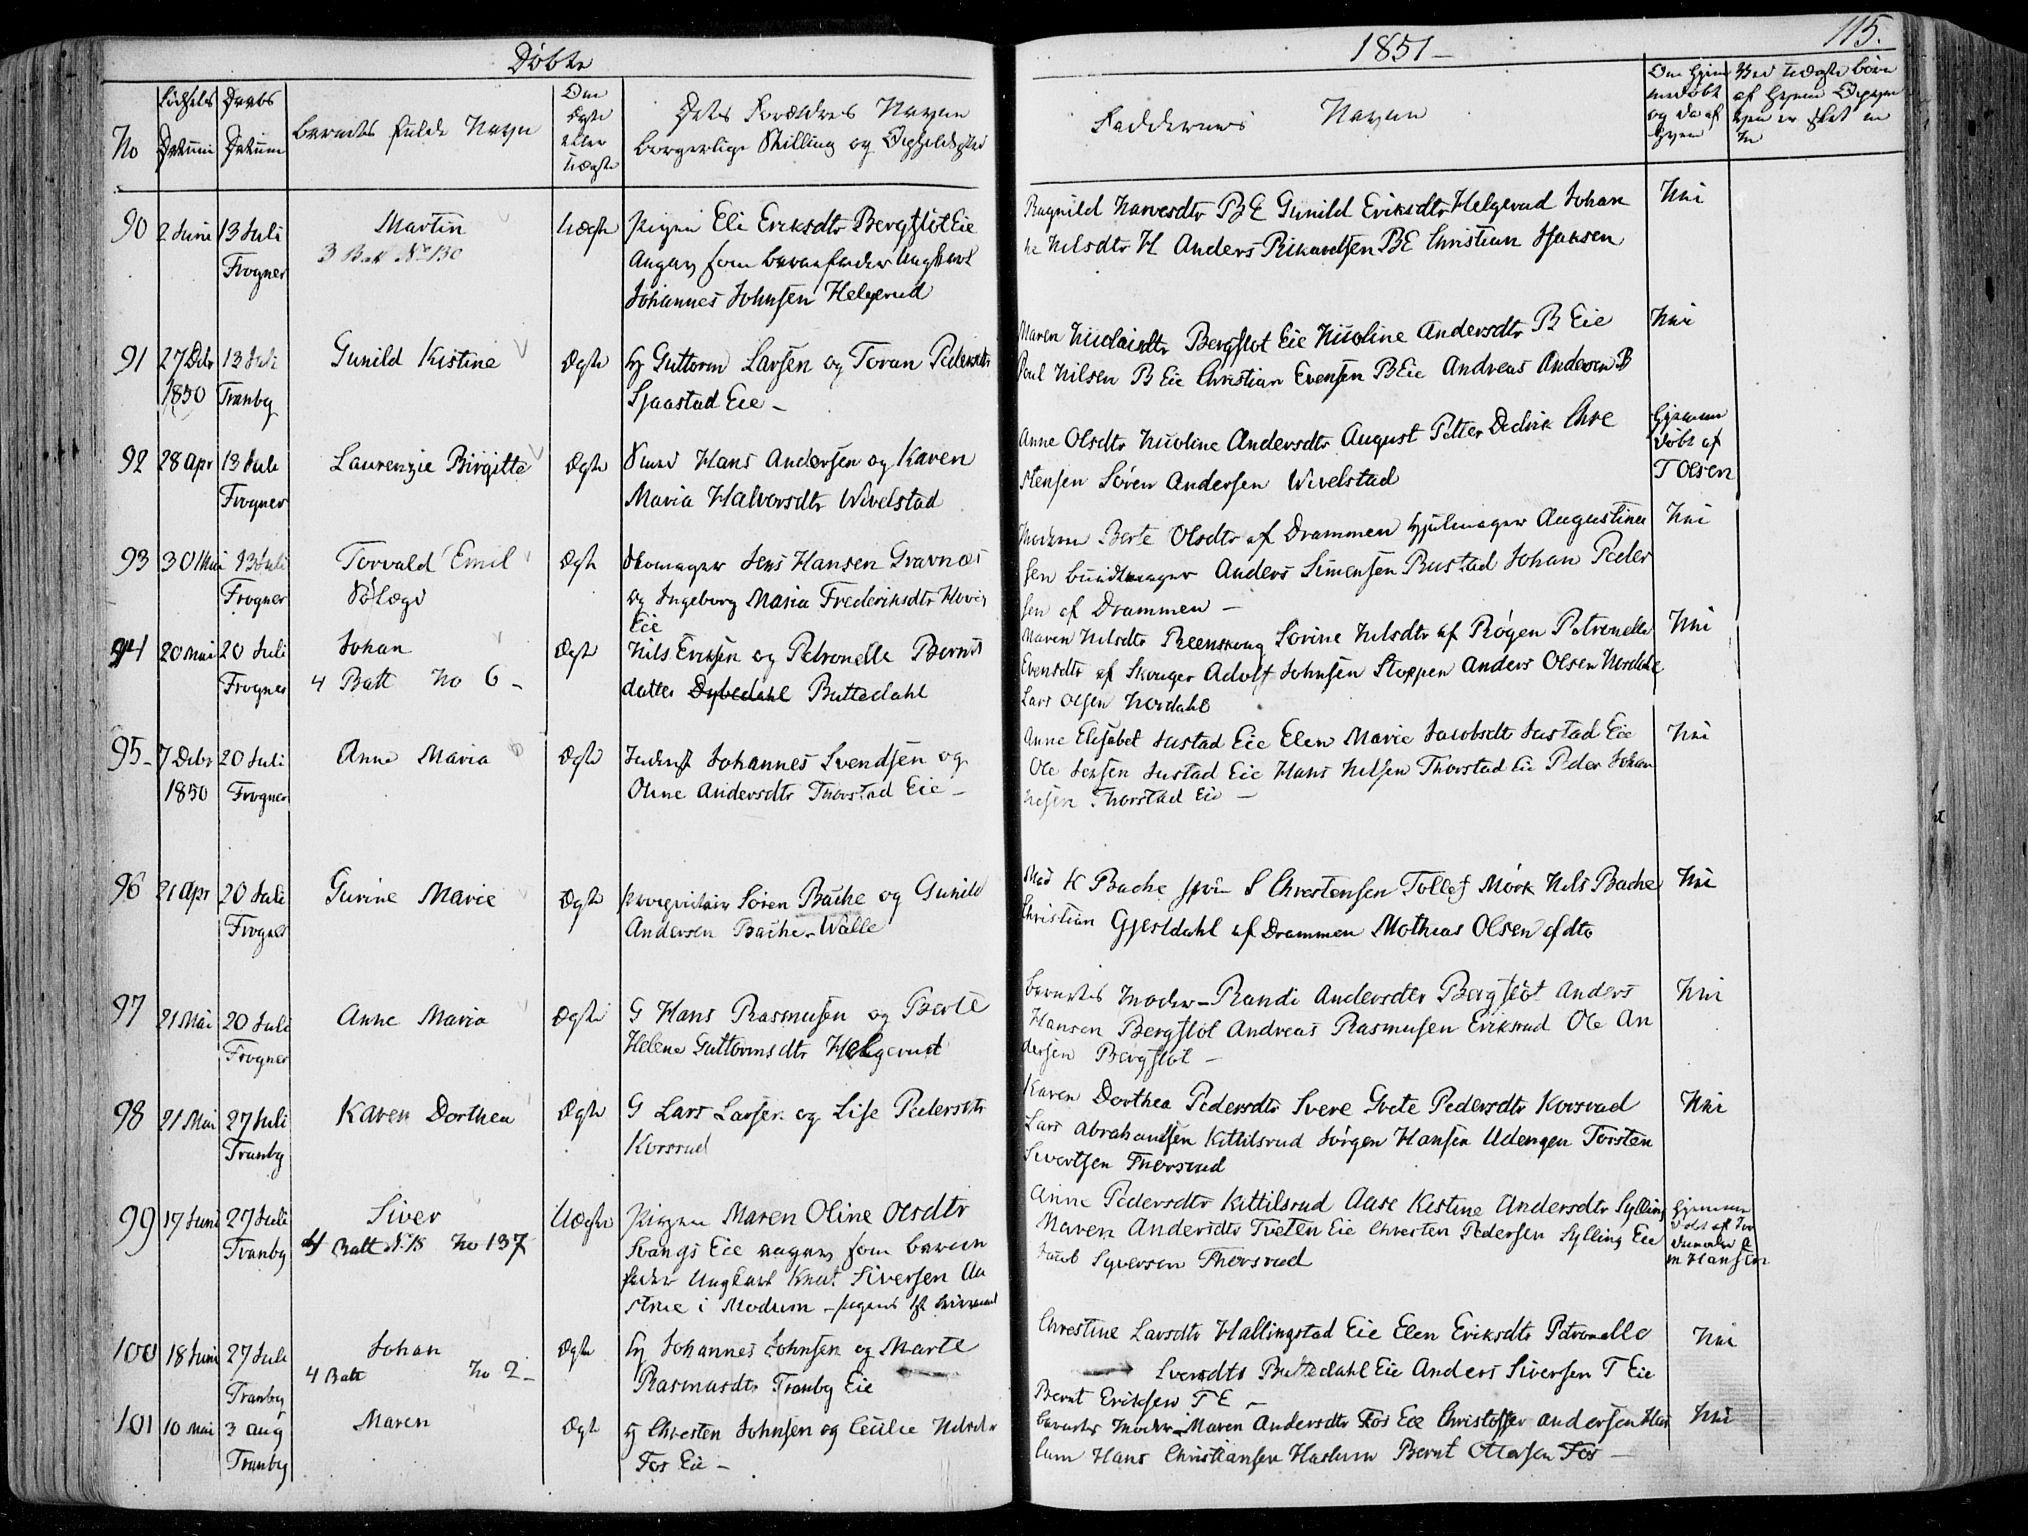 Döbte
1851 –
115.
No
Födsels Datum
Daabs Datum
barnets fulde Navn
Om Ægte eller Uægte
Dets Forældres Navne
borgerlige Stilling og Opholdssted
Faddernes Navne
Om hjemmedöbt og da af hvem
90 2 Juni 13 Juli Frogner
Martin
3 Batt No 130
Uægte
Pigen Eli Eriksdtr Bergflöt Eie
Angav som barnefader Ungkarl
Johannes Johnsen Helgerud
Ragnild Narvesdtr B E Gunild Eriksdtr Helgerud Johan
ne Nilsdtr H Anders Rikardsen B E Christian Isaksen
Nei
91 27 Debr 1850 13 Juli Tranby
Gunild Kistine
Ægte
Guttorm Larsen og Toran Pedersdtr
Sjaastad Eie –
Maren Nicolaisdtr Bergflot Eie Nicoline Andersdtr B Eie
Poul Nilsen B Eie Christian Evensen B Eie Andreas Andersen B
Nei
92 28 Apr 13 Juli Frogner
Laurenzie Birgitte
Ægte
Smed Hans Andersen og Karen
Maria Halvorsdtr Wivelstad
Anne Olsdtr Nicoline Andersdtr August Petter Dedrik Chre
stensen Sören Andersen Wivelstad
hjemme döbt af T Olsen
93 30 Mai 13 Juli Frogner
Torvald Emil
Ægte
Skomager Jens Hansen Gravnæs
og Ingeborg Maria Frederiksdtr
Eie
Berte Olsdtr af Drammen Hjulmager Augustinu
sen bundtmager Anders Simensen Bustad Johan Peder
sen af Drammen –
Nei
94 20 Mai 20 Juli Frogner
Johan
4 Batt No 6 –
Ægte
Nils Eriksen og Petronelle Bernts
datter Dybedahl Buttedahl
Maren Nilsdtr Reenskoug Sorine Nilsdtr af Rögen Petronelle
Evensdtr af Skouger Adolf Johnsen Stoppen Anders Olsen Nordahl
Lars Olsen Nordahl
Nei
95 – 7 Debr 1850 20 Juli Frogner
Anne Maria
Ægte
Inderst Johannes Svendsen og
Oline Andersdtr Thorstad Eie –
Anne Elisabet Justad Eie Elen Marie Jacobsdtr Justad Eie
Ole Jensen Justad Eie Hans Nilsen Thorstad Eie Peder Johan
nesen Thorstad Eie –
Nei
96 21 Apr 20 Juli Frogner
Gurine Marie
Ægte
Proprietair Sören Bache og Gunild
Andersen Bache – Walle
Mad K Bache S Chrestensen Tollef Mörk Nils Bache
Christian Gjesldahl af Drammen Mathias Olsen af dto
Nei
97 21 Mai 20 Juli Frogner
Anne Maria
Ægte
G Hans Rasmusen og Berte
Helene Guttormsdtr Helgerud
barnets Moder – Randi Andersdtr Bergflöt Anders
Hansen Bergflöt Andreas Rasmusen Eriksrud Ole An
dersen Bergflöt –
Nei
98 21 Mai 27 Juli Tranby
Karen Dorthea
Ægte
G Lars Larsen og Lise Pedersdtr
Korsrud
Karen Dorthea Pedersdtr Svere Grete Pedersdtr Korsrud
Lars Abrahamsen Kittilsrud Jörgen Hansen Udengen Torsten
Sivertsen Thorsrud
Nei
99 17 Juni 27 Juli Tranby
Siver
4 Batt No 137
Uægte
Pigen Maren Oline Olsdtr
Svangs Eie angav som barne
fader Ungkarl Knut Siversen Aa
strue i Modum –
Anne Pedersdtr Kittilsrud Aase Kestine Andersdtr Sylling
Maren Andersdtr Tveten Eie Chresten Pedersen Sylling Eie
Jacob Syversen Thorsrud
hjemme döbt af Jordemoder A M Hansen
100 18 Juni 27 Juli Tranby
Johan
4 Batt No 2 –
Ægte
Johannes Johnsen og Marte
Rasmusdtr Tranby Eie
Chrestine Larsdtr Hallingstad Eie Elen Eriksdtr Petronelle
Svendtr Buttedahl Eie Anders Siversen T Eie
Bernt Eriksen T E –
Nei
101 10 Mai 3 Aug Tranby
Maren
Ægte
Chresten Johnsen og Cecilie Nilsdtr
Fos Eie –
barnets Moder – Maren Andersdtr Fos Eie Christoffer Andersen Has
lum Hans Christiansen Haslum Bernt Ottersen Fos –
Nei